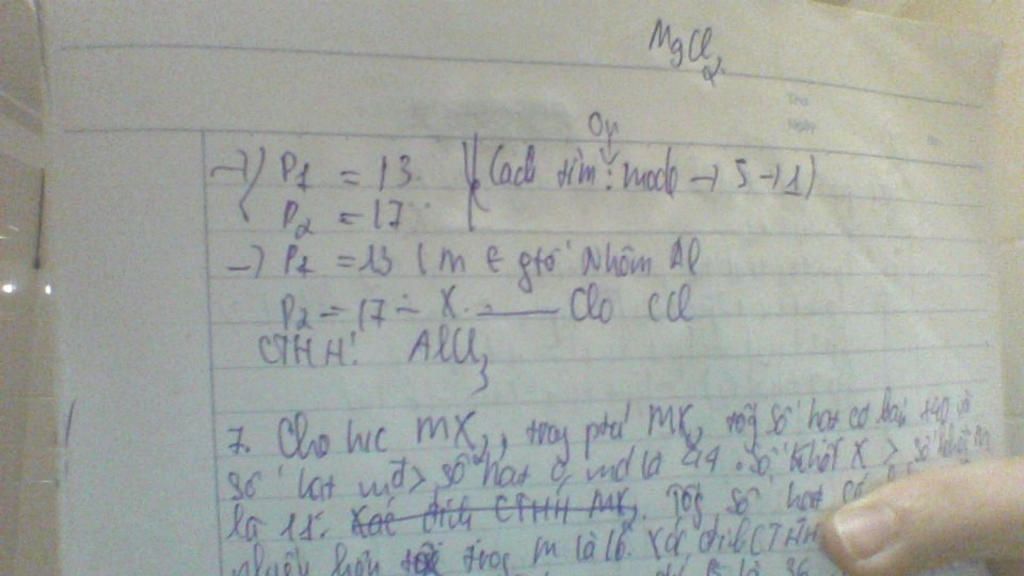 MgCl2
On
→) P1 = 13 (Cách tìm: mode → 5 → 1)
P2 = 17
→) P1 = 13 (M ∈ gtố Nhôm Al
P2 = 17 - X — Clo (Cl
CTHH: AlCl3
7. Cho h/c MX2, trong ptử MX2 tổg số hạt cơ bản 140 và
số hạt mđ > số hạt 0 mđ là 44. Số khối X > số khối M
là 11. Xác định CTHH MX2. Tổg số hạt
nhiều hơn trog M là 16. Xác định CTHH
là 36